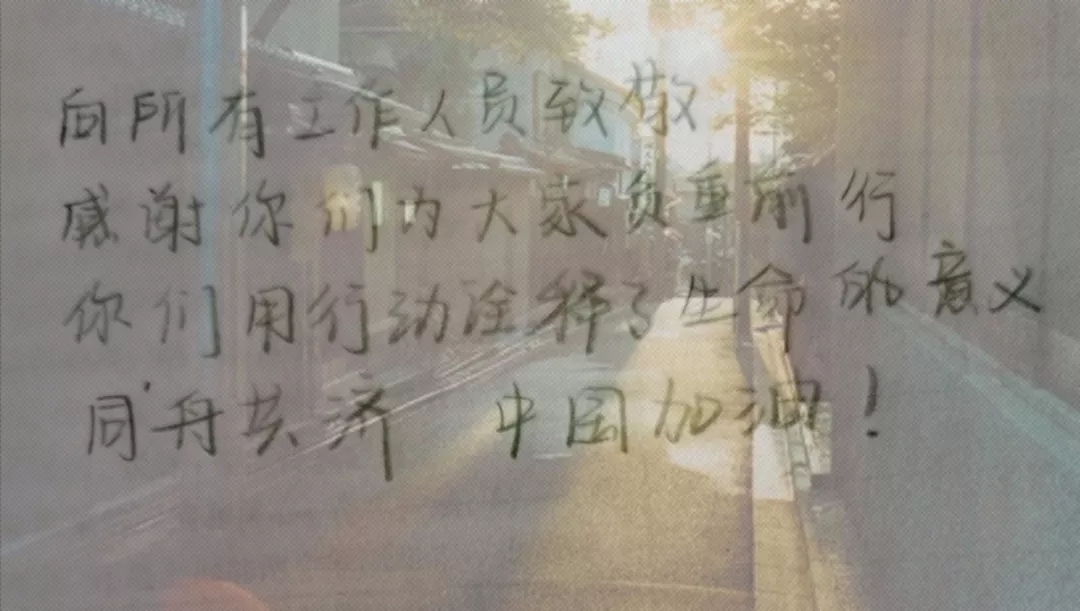 向所有工作人员致敬
感谢你们为大家负重前行
你们用行动诠释了生命的意义
同舟共济 中国加油!